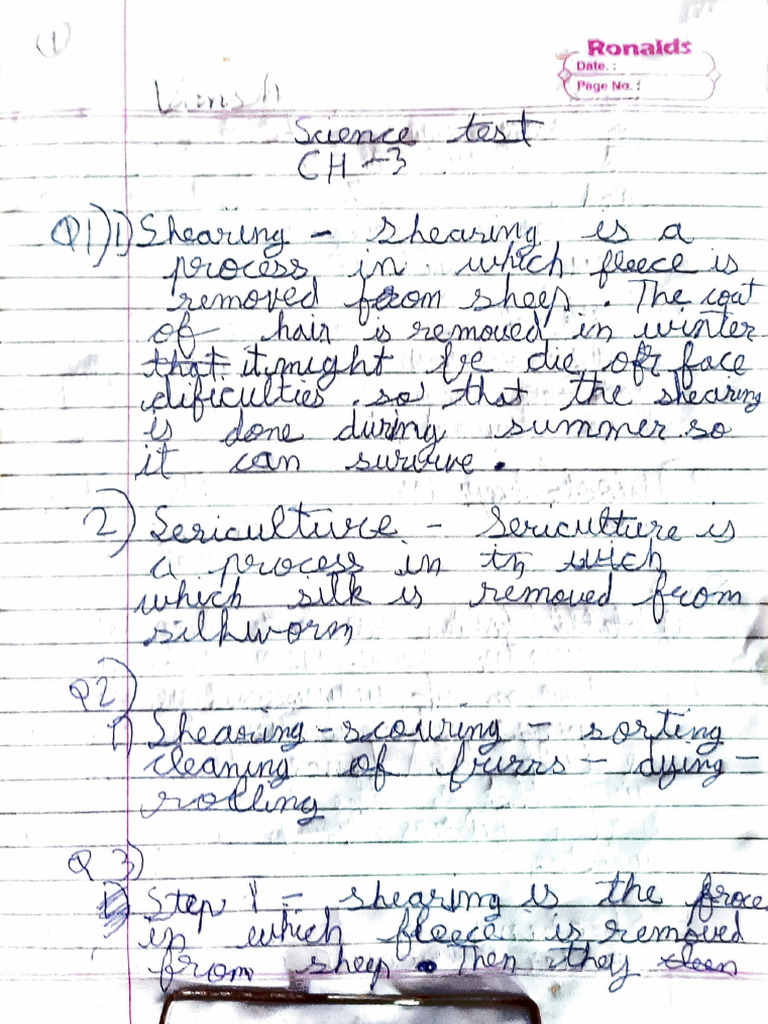 (1)
Ronalds
Date. :
Page No. :
Vansh
Science test
CH-3
Q1) 1) Shearing - shearing is a
process in which fleece is
removed from sheep. The coat
of hair is removed in winter
that it might be die or face
dificulties so that the shearing
is done during summer so
it can survive.
2) Sericulture - Sericulture is
a process in
which silk is removed from
silkworm
Q2)
1) Shearing - scouring - sorting
cleaning of furrs - dying -
rolling
Q 3)
Step 1 - shearing is the
in which fleece is removed
from sheep. Then they